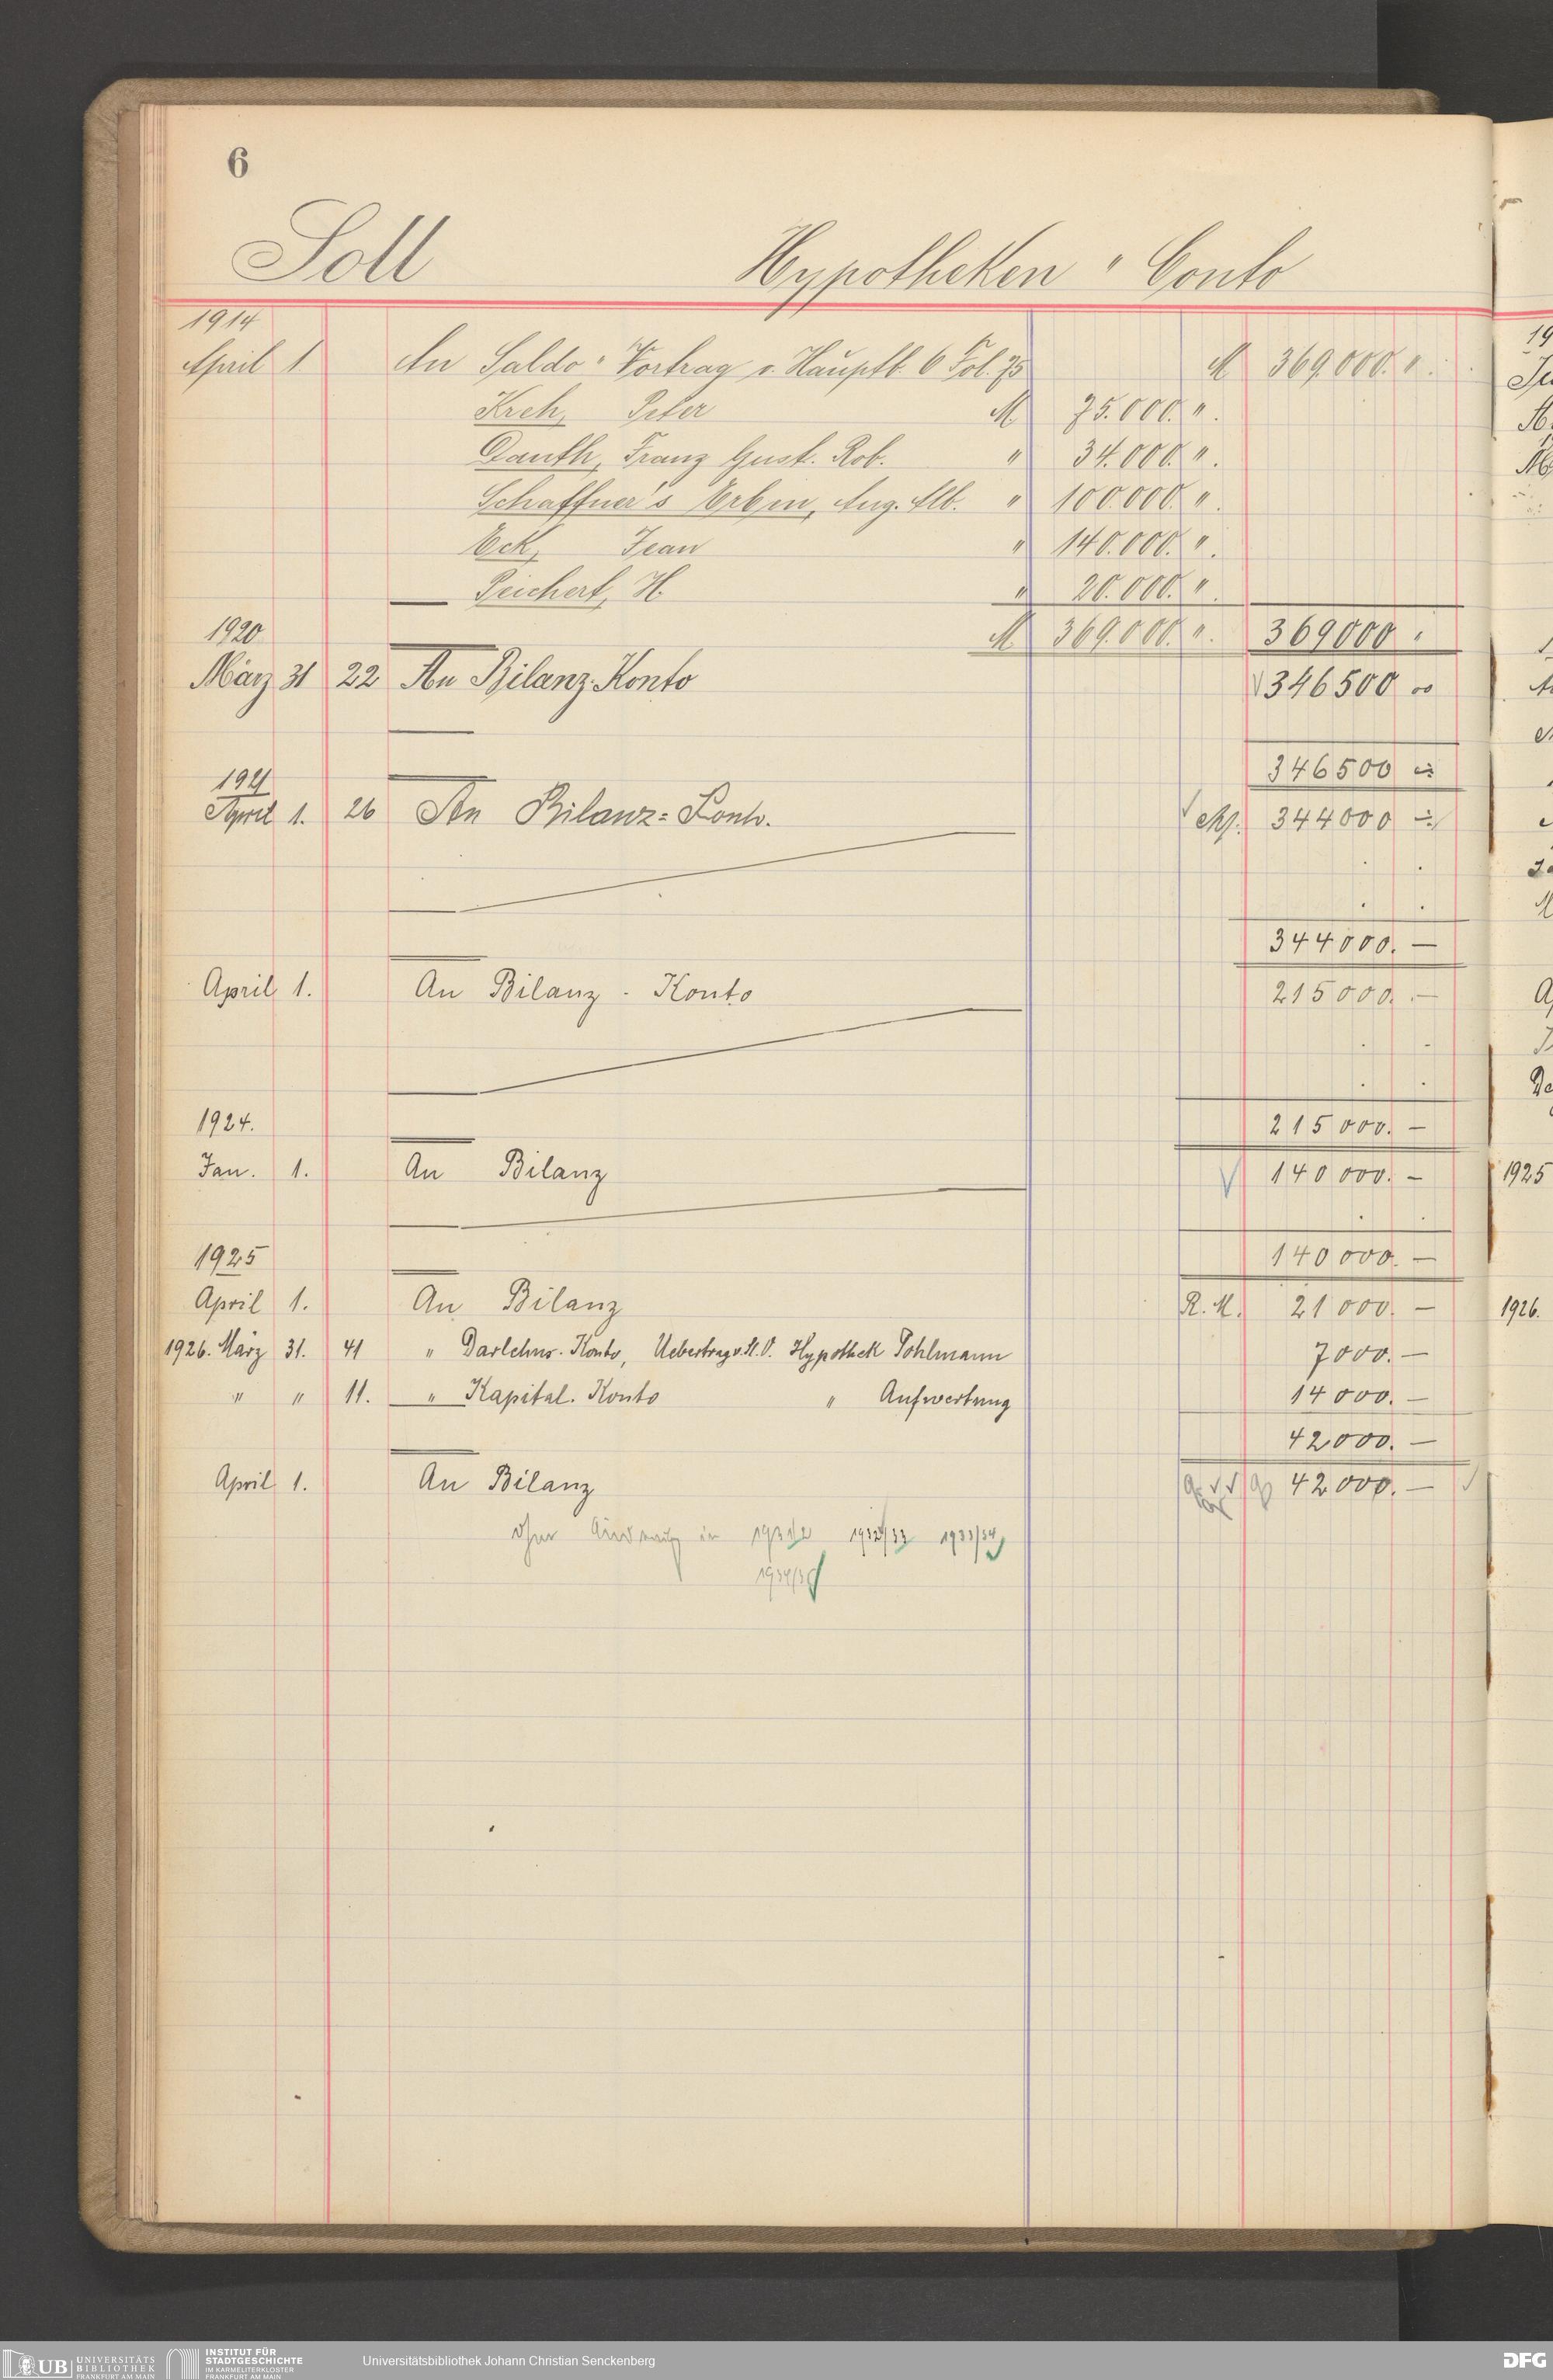 6
Soll Hypotheken " Conto
1914
April 1 An Saldo " Vortrag v. Hauptb. 6 Fol. 75 M 369.000. ".
Kreh, Peter M. 75.000. ".
Danth, Franz Gust. Rob. " 34.000. ".
Schaffner's Erben, Aug. Alb. " 100.000. ".
Eck, Jean " 140.000. ".
Peichert, H. " 20.000. ".
1920 M. 369.000. ". 369000 "
März 31 22 An Bilanz-Konto 346500 00
346500
1921
April 1. 26 An Bilanz=Konto. 344000
344000. —
April 1. An Bilanz - Konto 215000. —
1924. 215000. —
Jan. 1. An Bilanz 140000. —
1925 140000. —
April 1. An Bilanz R. M. 21000. —
1926. März 31. 41 " Darlehns-Konto, Uebertrag v. St. O. Hypothek Pohlmann 7000. —
" " 11. " Kapital-Konto " Aufwertung 14000. —
42000. —
April 1. An Bilanz 42000. —
in 1931/2 1932/33 1933/34
1934/35
1925
1926.
UB UNIVERSITÄTS BIBLIOTHEK FRANKFURT AM MAIN
INSTITUT FÜR STADTGESCHICHTE IM KARMELITERKLOSTER FRANKFURT AM MAIN
Universitätsbibliothek Johann Christian Senckenberg
DFG